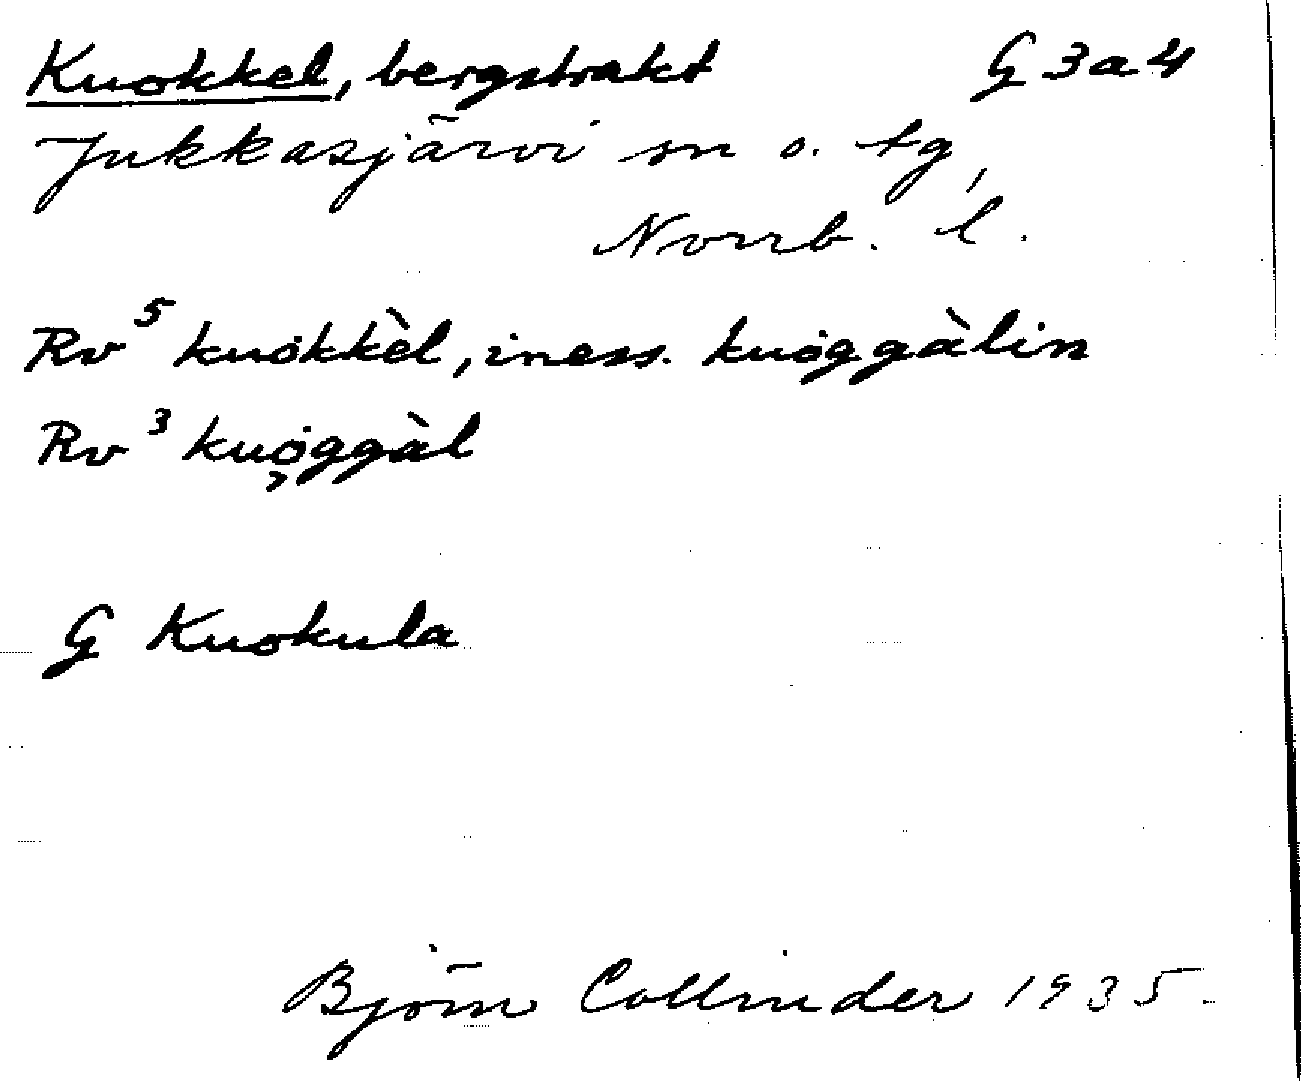 Kuokkel, bergstrakt G 3 a 4
Jukkasjärvi sn o. tg,
Norrb. l.
Rv⁵ kuȯkkèl, iness. kuȯggàlin
Rv³ kuȯ̦ggàl
G Kuokula
Björn Collinder 1935.